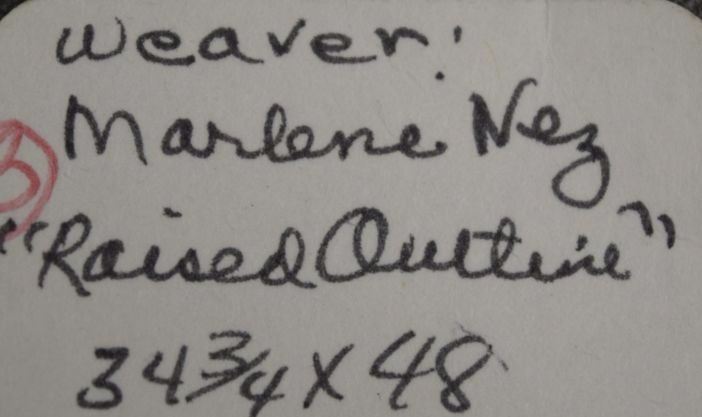 Weaver:
Marlene Nez
"Raised Outline"
34 3/4 x 48